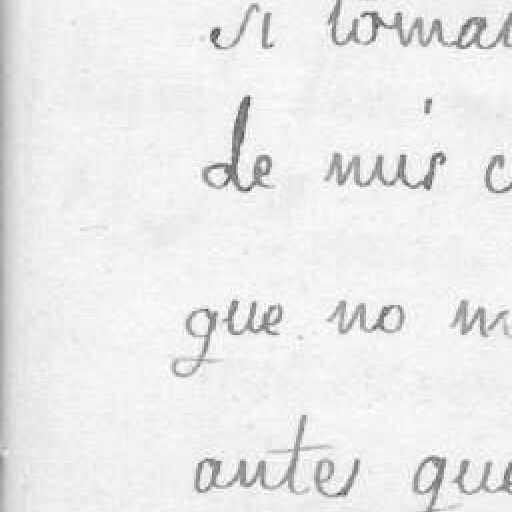 si tomar
de mis
que no
antes que